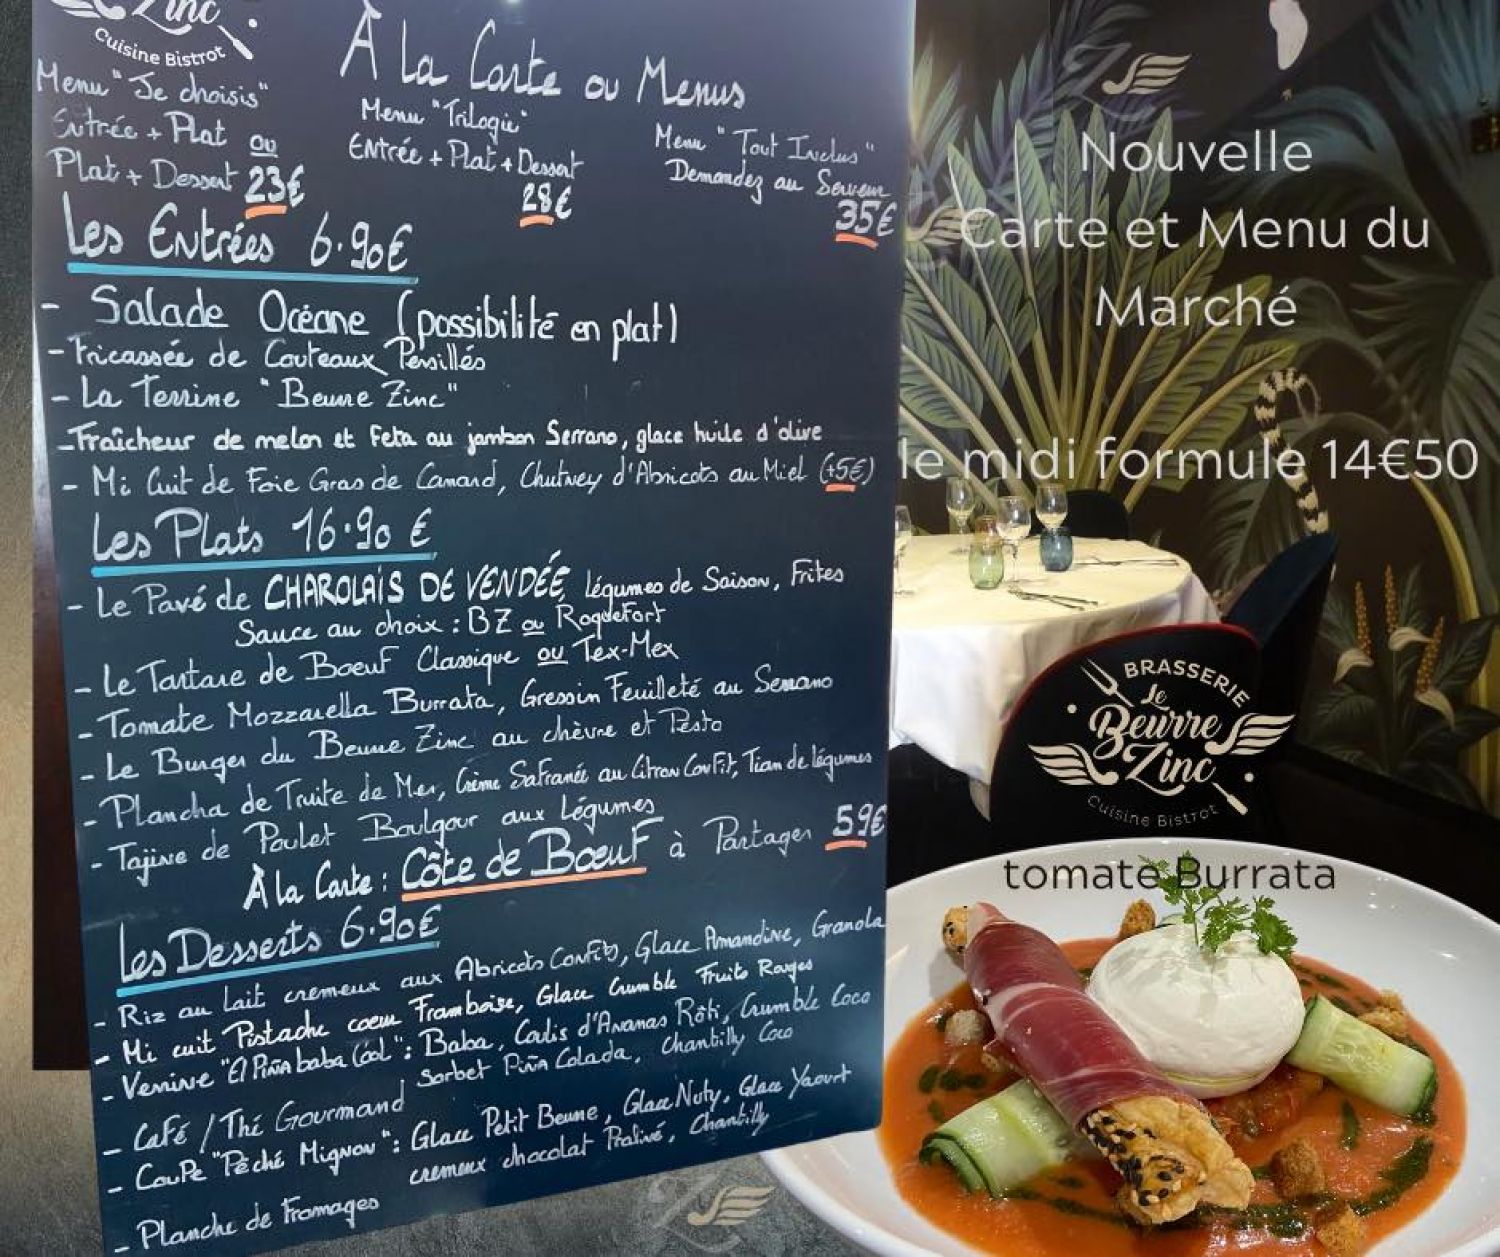 Zinc
Cuisine Bistrot
À La Carte ou Menus
Menu "Je choisis"
Entrée + Plat ou
Plat + Dessert 23€
Menu "Trilogie"
Entrée + Plat + Dessert
28€
Menu "Tout Inclus"
Demandez au Serveur
35€
Les Entrées 6.90€
- Salade Océane (possibilité en plat)
- Fricassée de Couteaux Persillés
- La Terrine "Beurre Zinc"
- Fraîcheur de melon et Feta au jambon Serrano, glace huile d'olive
- Mi Cuit de Foie Gras de Canard, Chutney d'Abricots au Miel (+5€)
Les Plats 16.90 €
- Le Pavé de CHAROLAIS DE VENDÉE, légumes de Saison, Frites
Sauce au choix : BZ ou Roquefort
- Le Tartare de Boeuf Classique ou Tex-Mex
- Tomate Mozzarella Burrata, Gressin Feuilleté au Serrano
- Le Burger du Beurre Zinc au chèvre et Pesto
- Plancha de Truite de Mer, Crème Safranée au Citron Confit, Tian de légumes
- Tajine de Poulet Boulgour aux Légumes
À la Carte : Côte de Boeuf à Partager 59€
Les Desserts 6.90€
- Riz au lait crémeux aux Abricots Confits, Glace Amandine, Granola
- Mi cuit Pistache coeur Framboise, Glace Crumble Fruits Rouges
- Verrine "El Piña baba Cool" : Baba, Coulis d'Ananas Rôti, Crumble Coco
Sorbet Piña Colada, Chantilly Coco
- Café / Thé Gourmand
- Coupe "Péché Mignon" : Glace Petit Beurre, Glace Nuty, Glace Yaourt
crémeux chocolat Praliné, Chantilly
- Planche de Fromages
Nouvelle
Carte et Menu du
Marché
le midi formule 14€50
BRASSERIE
Le
Beurre
Zinc
Cuisine Bistrot
tomate Burrata